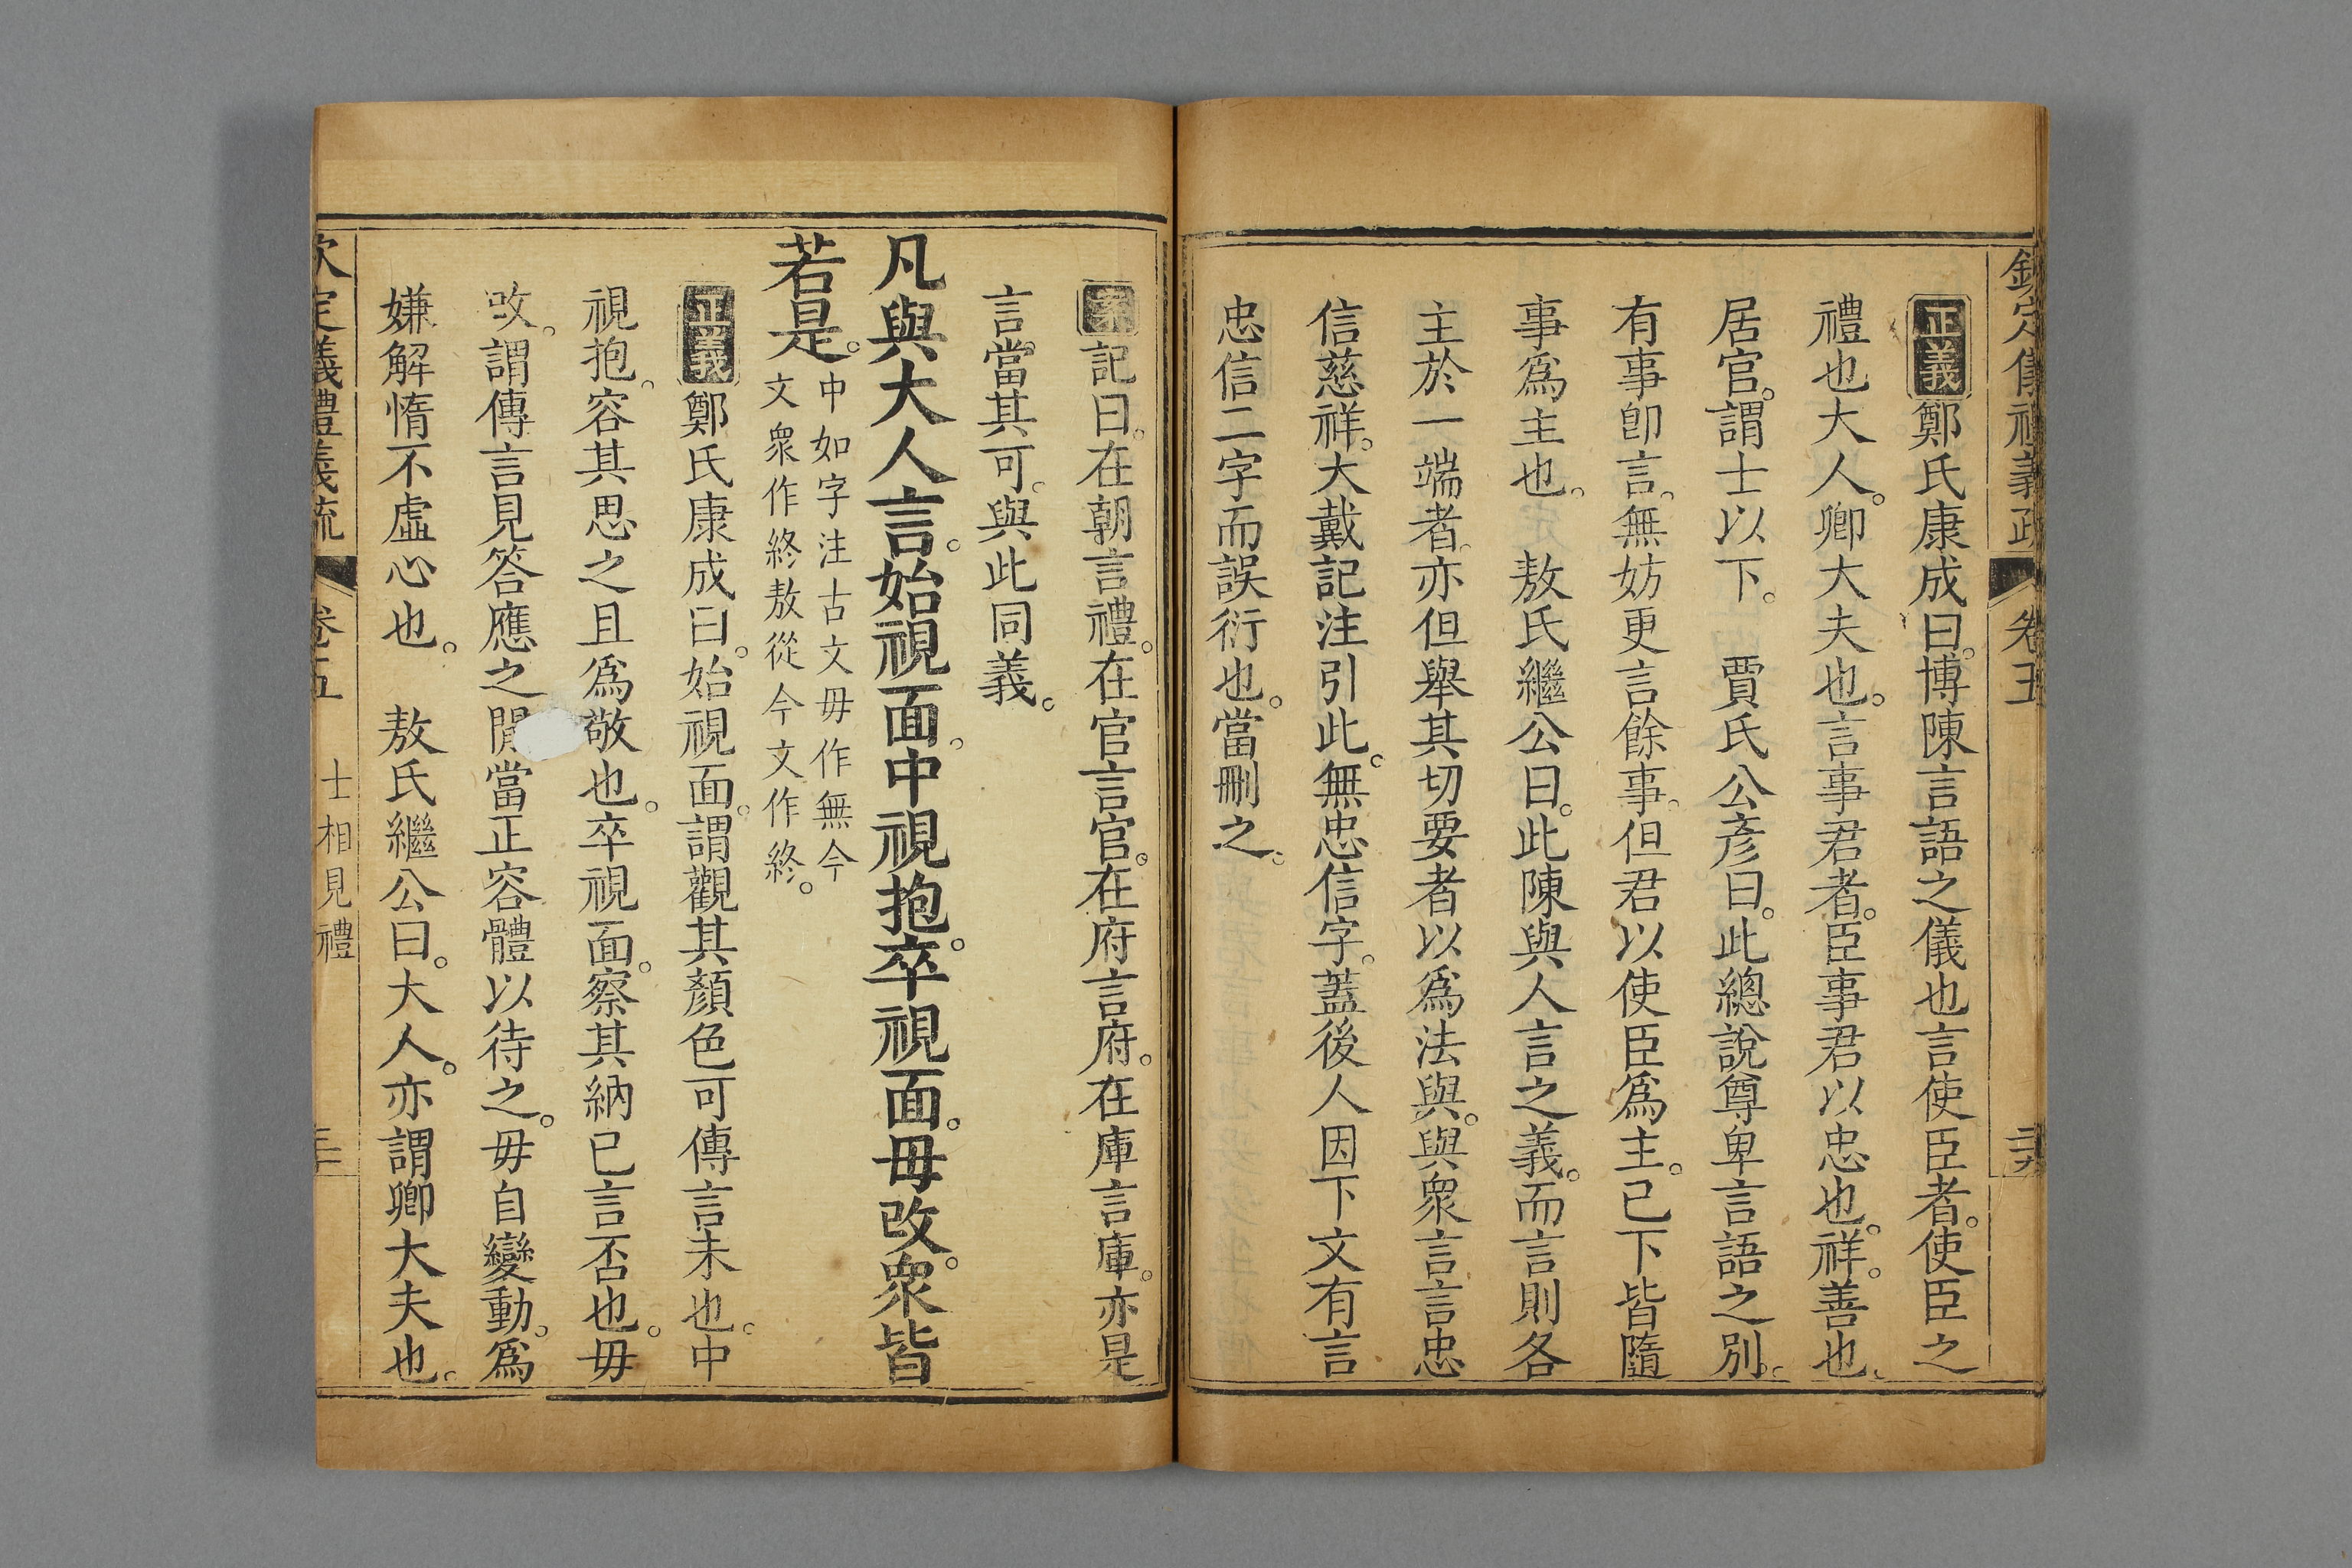 欽定儀禮義疏 卷五
正義鄭氏康成曰。博陳言語之儀也言使臣者。使臣之
禮也大人。卿大夫也。言事君者。臣事君以忠也。祥。善也。
居官。謂士以下。 賈氏公彦曰。此總說尊卑言語之別。
有事卽言。無妨更言餘事。但君以使臣爲主。已下皆隨
事爲主也。 敖氏繼公曰。此陳與人言之義。而言則各
主於一端者。亦但舉其切要者以爲法與。與衆言言忠
信慈祥。大戴記注引此。無忠信字。蓋後人因下文有言
忠信二字而誤衍也。當刪之。
案記曰。在朝言禮。在官言官。在府言府。在庫言庫。亦是
言當其可。與此同義。
凡與大人言。始視面。中視抱。卒視面。毋改。衆皆
若是。中如字注古文毋作無今
文衆作終敖從今文作終。
正義鄭氏康成曰。始視面。謂觀其顏色可傳言未也。中
視抱。容其思之且爲敬也。卒視面。察其納已言否也。毋
改。謂傳言見答應之閒當正容體以待之。毋自變動。爲
嫌解惰不虛心也。 敖氏繼公曰。大人。亦謂卿大夫也。
欽定儀禮義疏 卷五 士相見禮